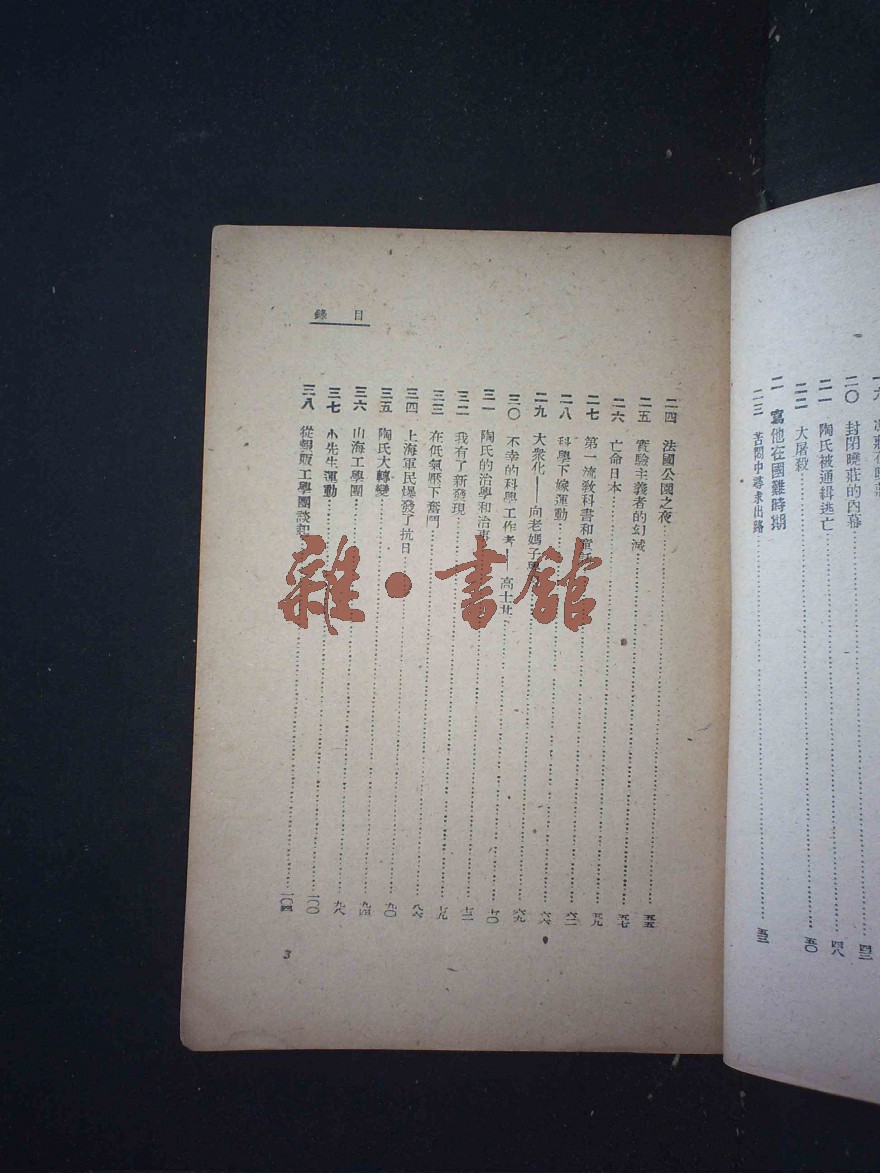 二〇 封閉曉莊的內幕 四三
二一 陶氏被通緝逃亡 四八
二二 大屠殺 五〇
二 寫他在國難時期
二三 苦悶中尋求出路 五三
目錄
二四 法國公園之夜 五五
二五 實驗主義者的幻滅 五七
二六 亡命日本 五九
二七 第一流教科書和童話
二八 科學下嫁運動
二九 大衆化——向老媽子
三〇 不幸的科學工作者——高士其
三一 陶氏的治學和治事
三二 我有了新發現
三三 在低氣壓下奮鬥
三四 上海軍民爆發了抗日
三五 陶氏大轉變 九〇
三六 山海工學團 九四
三七 小先生運動
三八 從報販工學團談起 一〇四
3
雜·書館